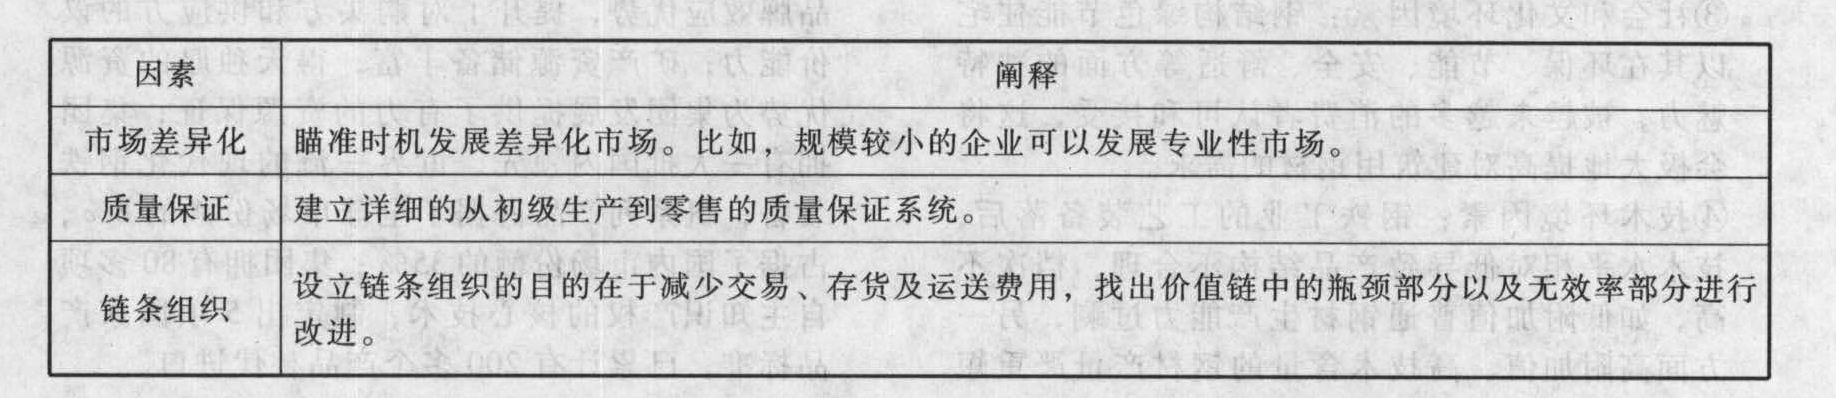 因素 阐释
市场差异化 瞄准时机发展差异化市场。比如，规模较小的企业可以发展专业性市场。
质量保证 建立详细的从初级生产到零售的质量保证系统。
链条组织 设立链条组织的目的在于减少交易、存货及运送费用，找出价值链中的瓶颈部分以及无效率部分进行
改进。